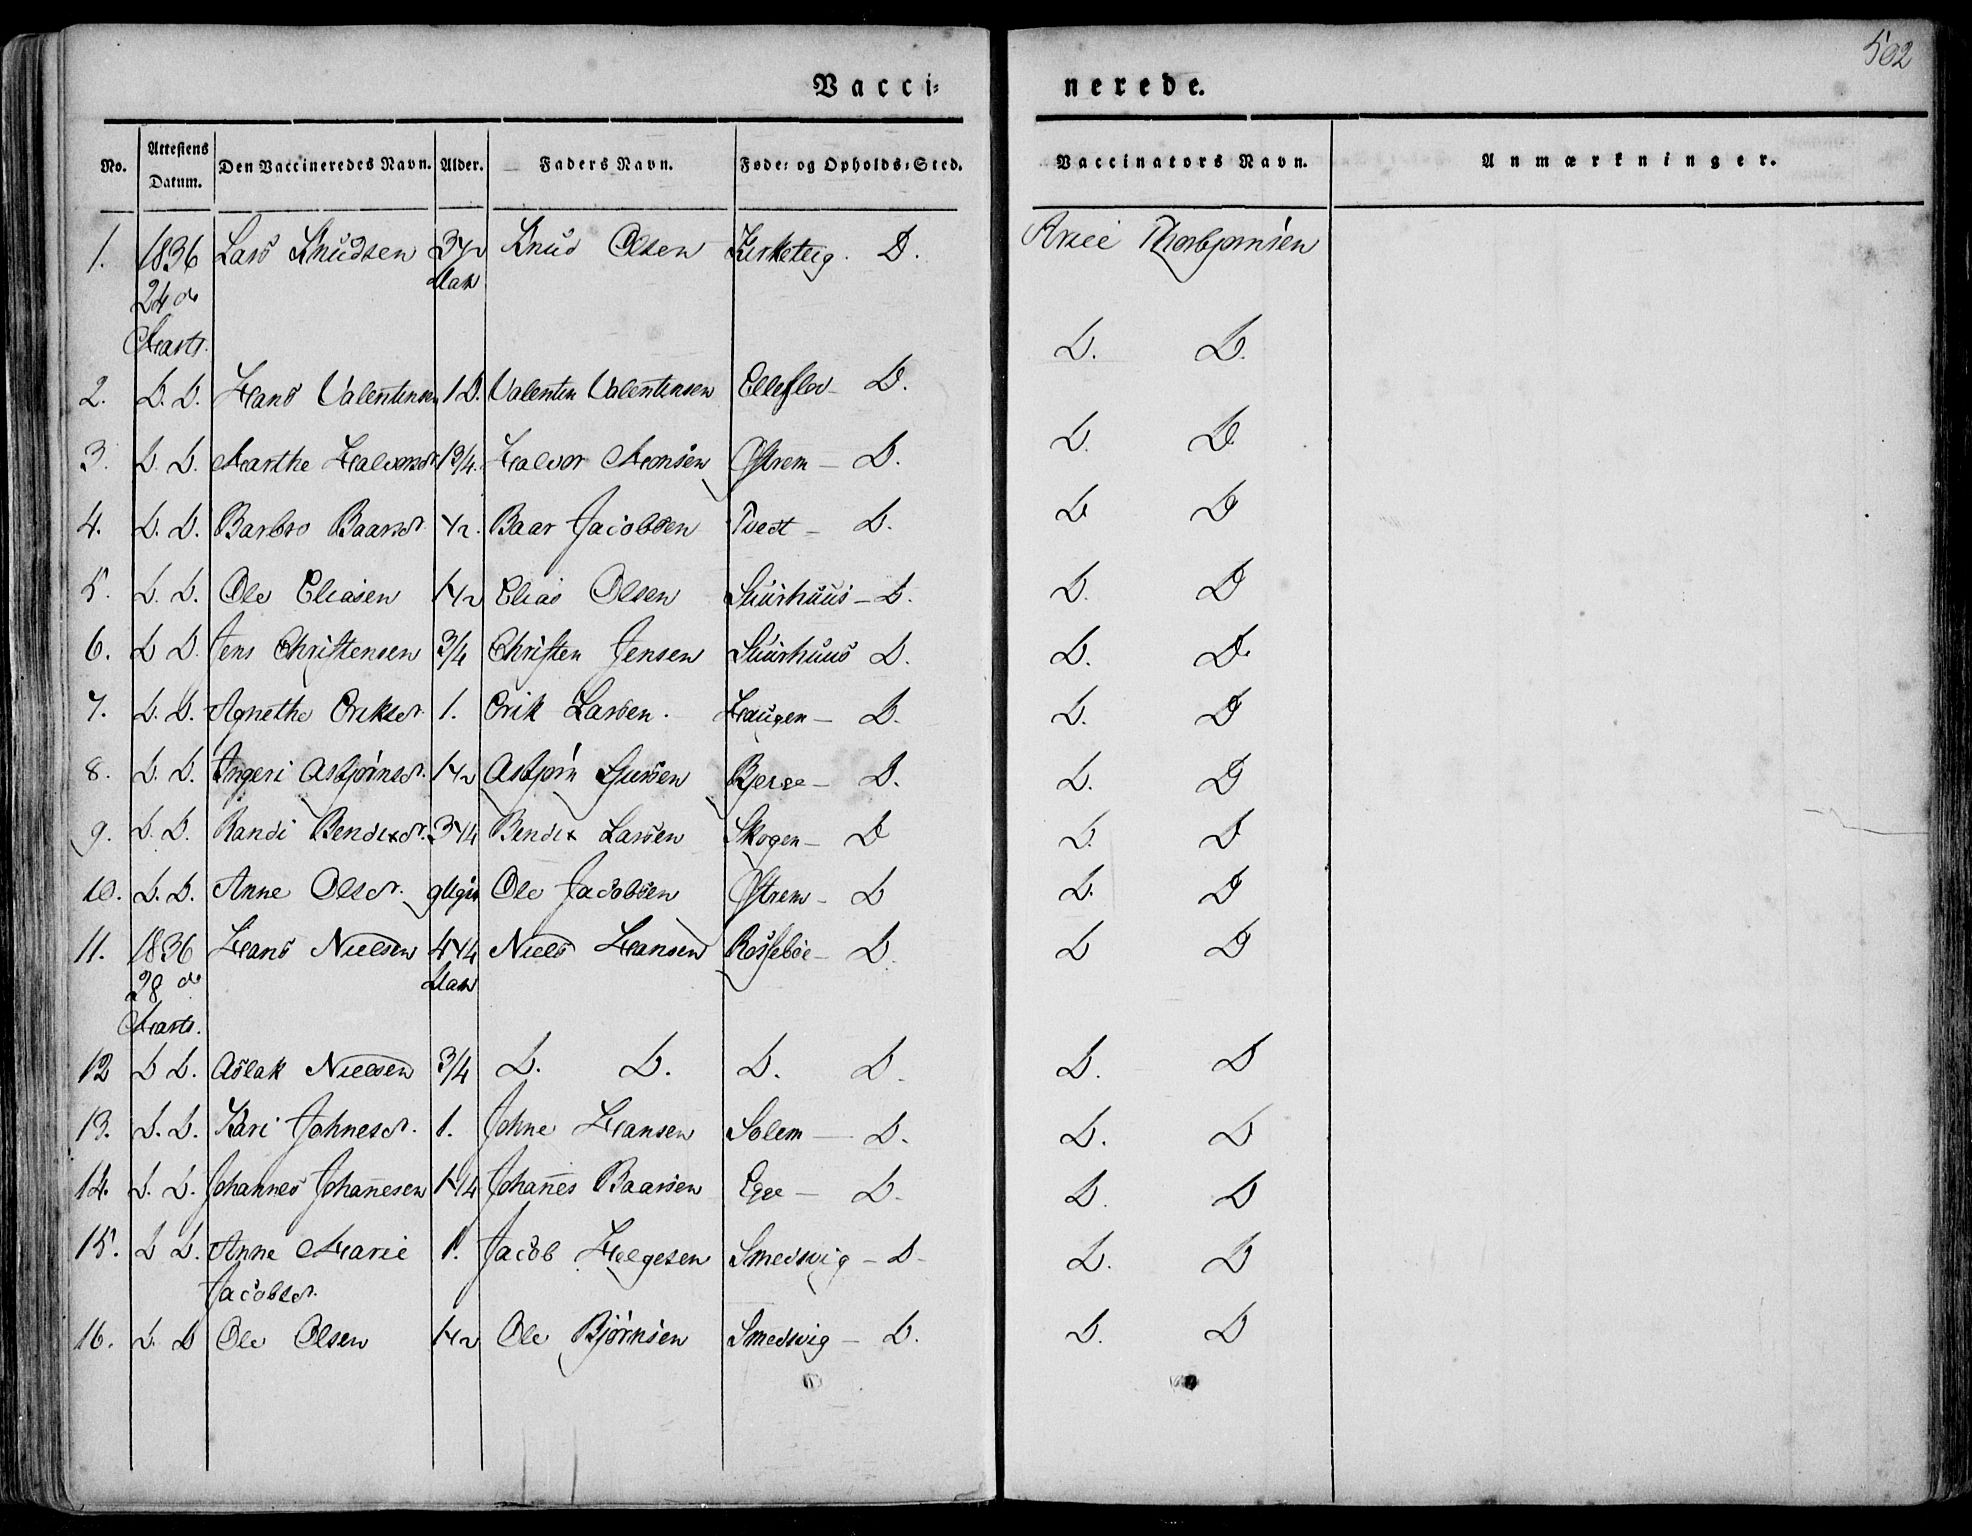 502
Vacci-nerede.
No. Attestens Datum. Den Vaccineredes Navn. Alder. Faders Navn. Føde- og Opholds-Sted. Vaccinators Navn. Anmærkninger.
1. 1836 Lars Knudsen 3 1/2 Knud Olsen Kirketeig. D. Thorbjørnsen
24de Aar
Marts.
D. D.
2. D. D. Hans Valentinsen 1 D. Valentin Valentinsen D.
3. D. D. Marthe Halvorsdr. 1 3/4. Halvor Monsen Østrem - D. D. D
4. D. D. Barbro Baarsdr. 1/2. Baar Jacobsen Tvedt - D. D D
5. D. D. Ole Eliasen 1 1/2 Elias Olsen Stuurhuus - D. D. D
6. D D. Jens Christensen 3/4 Christen Jensen Stuurhuus D. D. D.
7. D. D. Agnethe Eriksdr. 1. Erik Larsen. Haugen - D. D. D
8. D. D. Ingeri Asbjørnsdr. 1 1/2 Asbjørn Sjursen Bjerge - D. D. D
9. D. D. Randi Bendixdr. 3 1/4 Bendix Larsen Skogen - D D. D
10. D. D. Anne Olsdr. 9 Ole Jacobsen Østrem - D D. D
11. 1836 Hans Nielsen 4 1/4 Niels Hansen Rossebøe - D. D D
28de Aar
Marts.
12 D D. Aslak Nielsen 3/4 D. D. D. D. D. D
13. D. D. Kari Johnesdr. 1. Johne Hansen Solem - D. D. D
14. D. D. Johannes Johañesen 1 1/4 Johañes Baarsen Egge - D. D D
15. D D. Anne Marie 1. Jacob Helgesen Smedsvig - D - D. D
Jacobsdr.
16. D. D Ole Olsen 1 1/2 Ole Bjørnsen Smedsvig - D. D. D